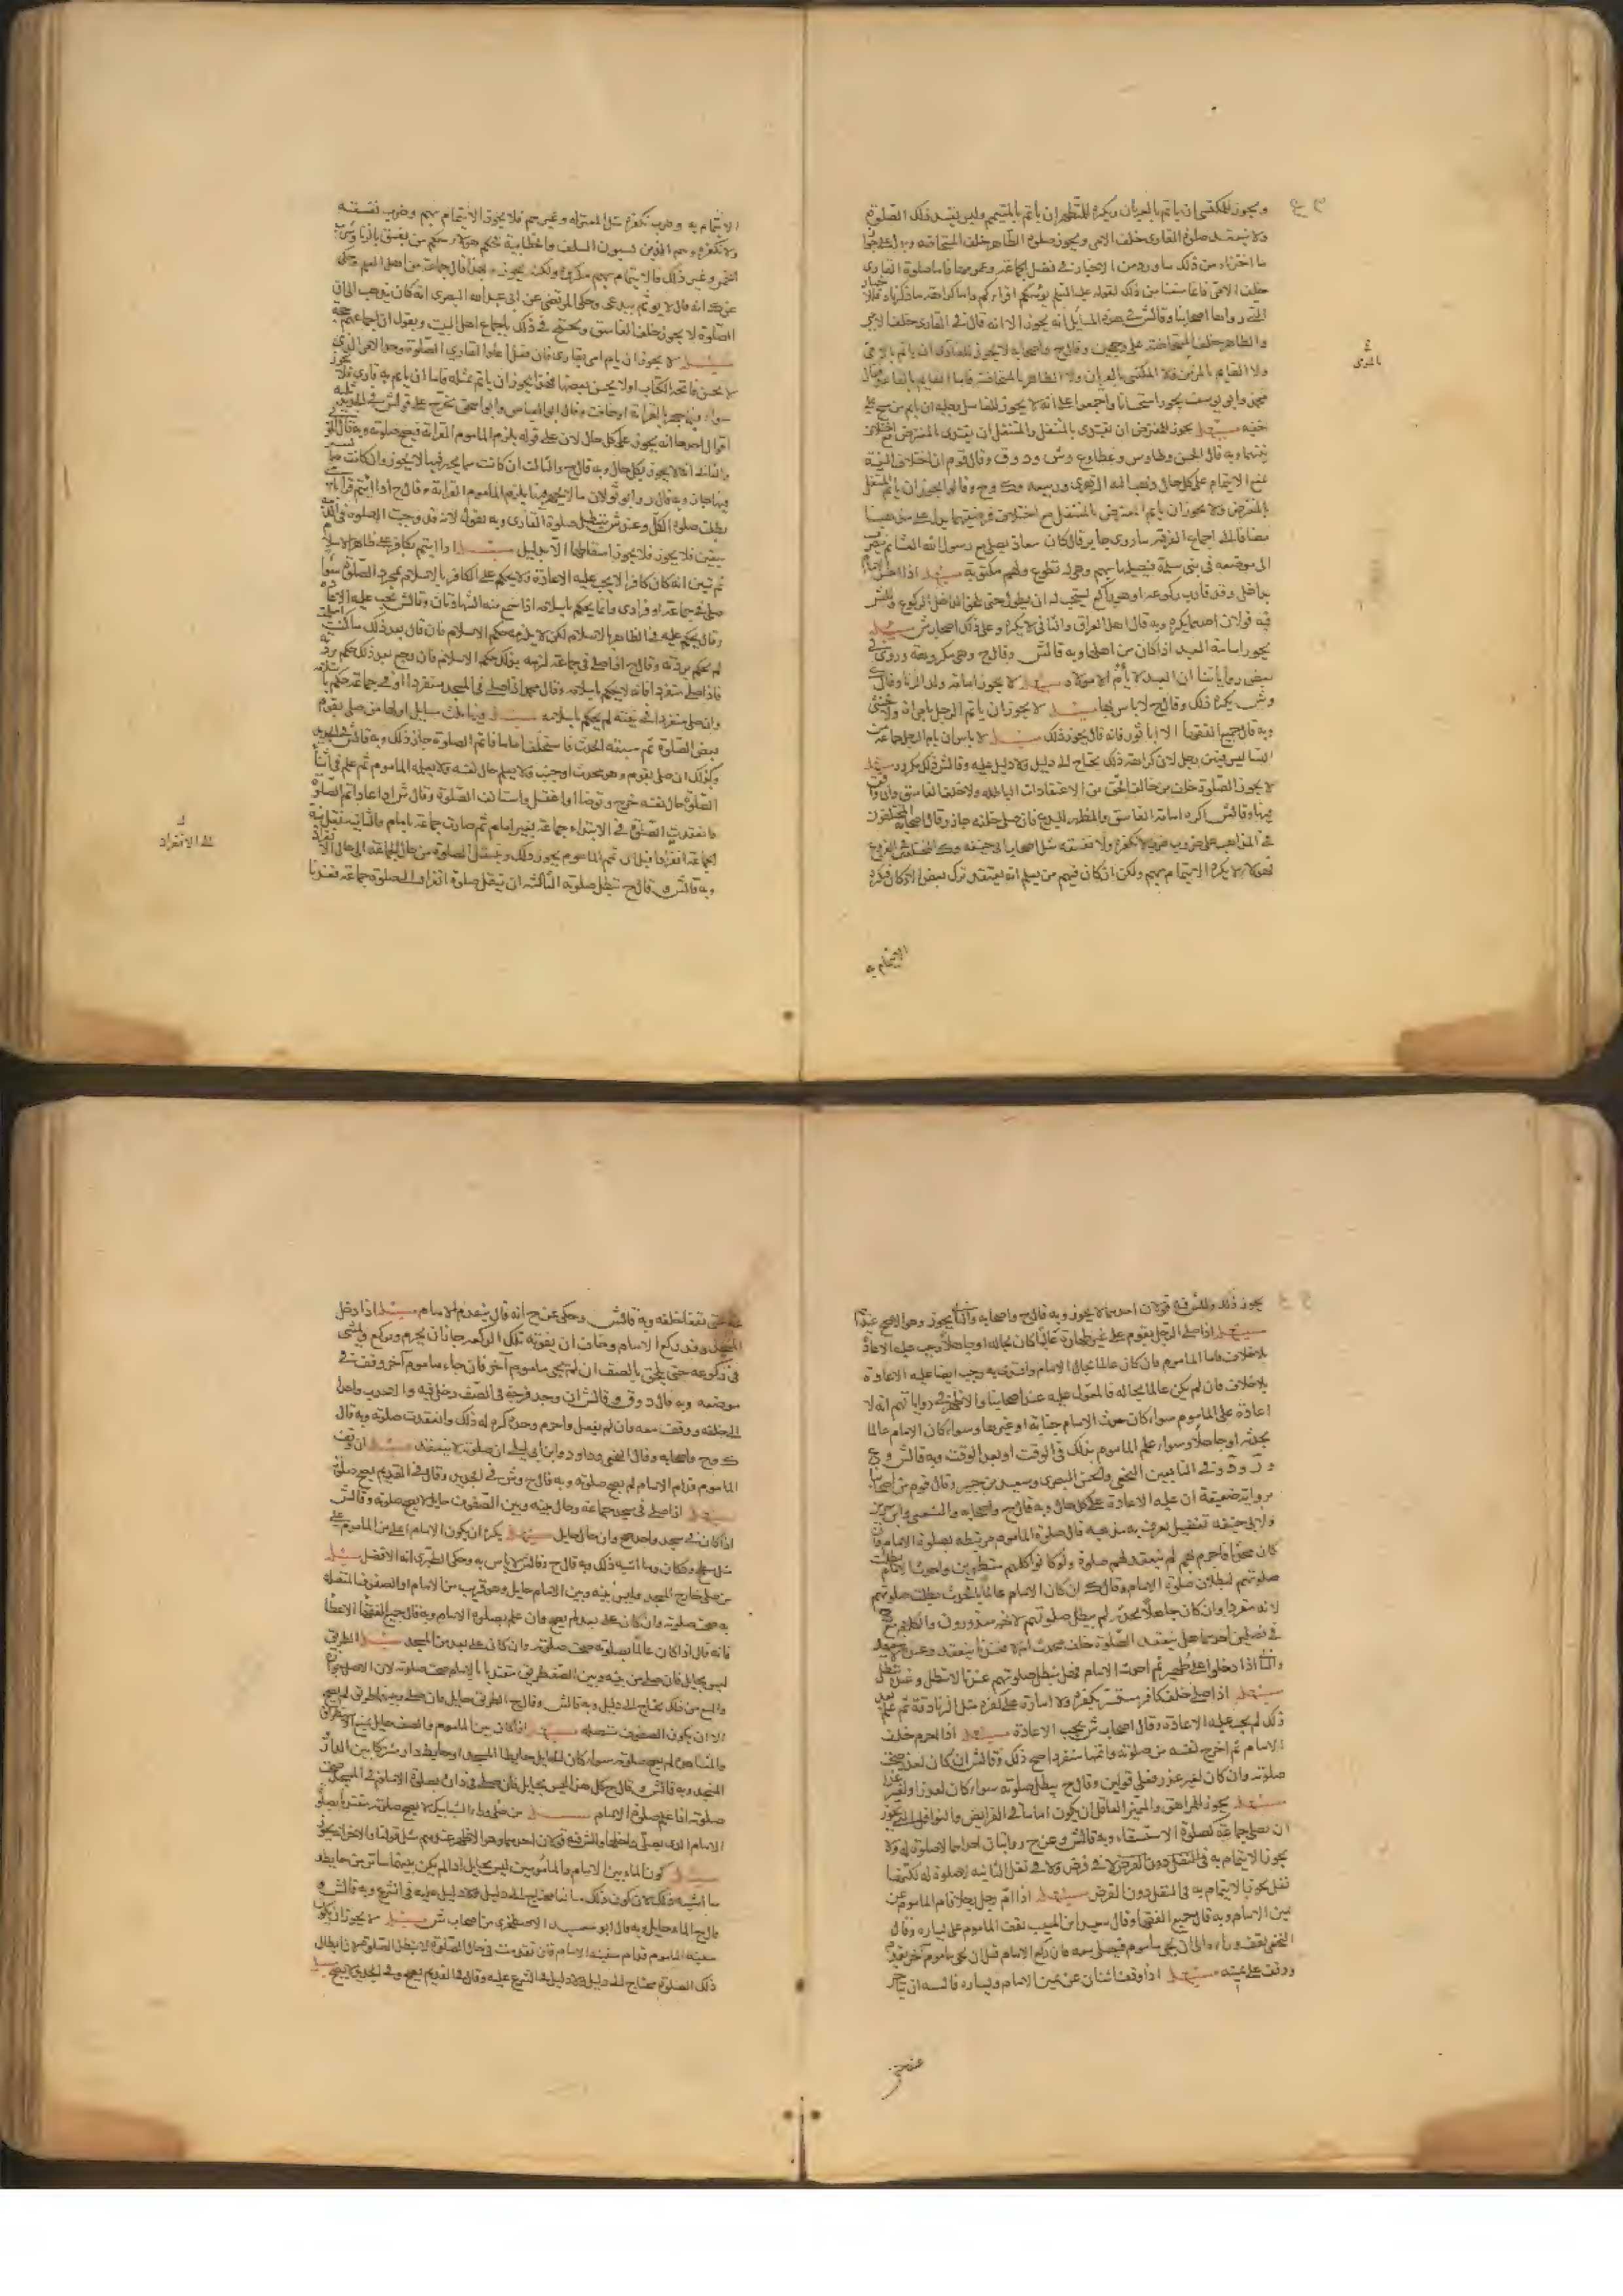 ويجوز للمكتسى ان ياتم بالعريان ويكره للمتطهر ان ياتم بالمتيمم وليس يفسد ذلك الصلوة
ولا ينعقد صلوة القارى خلف الامى ويجوز صلوة الطاهر خلف المستحاضة
ما اخترناه من ذلك ما ورد من الاخبار فى فضل الجماعة وعمومها فاما صلوة القارى
خلف الامى فانما منعنا من ذلك لقوله عليه السلم يؤمكم اقراكم
التى رواها اصحابنا وقال ش فى هذه المسايل انه يجوز الا انه قال فى القارى خلف الامى
والطاهر خلف المستحاضة على وجهين وقال ح واصحابه لا يجوز للقارى ان ياتم بالامى
ولا القايم بالمومى ولا المكتسى بالعريان ولا الطاهر بالمستحاضة فاما القايم بالقاعد
وابو يوسف يجوز استحسانا واجمعوا على انه لا يجوز للغاسل رجليه ان ياتم بمن مسح على
خفيه مسئلة يجوز للمفترض ان يقتدى بالمتنفل والمتنفل ان يقتدى بالمفترض مع اختلاف
نيتهما وبه قال الحسن وطاوس وعطا وع وش ود وق وقال قوم ان اختلاف النية
يمنع الايتمام على كل حال ذهب اليه الزهرى وربيعه وك وح وقالوا يجوز ان ياتم المتنفل
بالمفترض ولا يجوز ان ياتم المفترض بالمتنفل مع اختلاف فرضيهما
مضافا الى اجماع الفرقه ما روى جابر قال كان معاذ يصلى مع رسول الله العشا ثم ينصرف
الى موضعه فى بنى سلمة فيصليها بهم وهى له تطوع ولهم مكتوبة مسئلة اذا احس الامام
بداخل وقد قارب ركوعه او هو راكع يستحب له ان يطول حتى يلحق الداخل الركوع وللش
فيه قولان احدهما يكره وبه قال اهل العراق والثانى لا يكره وعلى ذلك اصحاب ش مسئلة
يجوز امامة العبد اذا كان من اهلها وبه قال ش وقال ح وهى مكروهة وروى فى
بعض رواياتنا ان العبد لا يؤم الا مولاه مسئلة لا يجوز امامة ولد الزنا وقال ك
وش يكره ذلك وقال ح لا باس بها مسئلة لا يجوز ان ياتم الرجل بامراة ولا خنثى
وبه قال جميع الفقها الا ابا ثور فانه قال يجوز ذلك مسئلة لا باس ان يام الرجل جماعة من
النسا ليس فيهن رجل لان كراهة ذلك يحتاج الى دليل ولا دليل عليه وقال ش ذلك مكروه مسئلة
لا يجوز الصلوة خلف من خالف الحق من الاعتقادات الباطلة ولا خلف الفاسق وان وافق
فيها وقال ش اكره امامة الفاسق والمظهر للبدع فان صلى خلفه جاز وقال اصحابه المختلفون
فى المذاهب على ضروب ضرب لا نكفره ولا نفسقه مثل اصحاب ابى حنيفه وك المختلفين فى الفروع
فهولاء لا يكره الايتمام بهم ولكن ان كان فيهم من يعلم انه يعتقد ترك بعض الاركان فيكره
الايتمام به
بالمومى
الايتمام به وضرب نكفره مثل المعتزله وغيرهم فلا يجوز الايتمام بهم وضرب نفسقه
ولا نكفره وهم الذين يسبون السلف والخطابية فحكم هولاء حكم من يفسق بالزنا وشرب
الخمر وغير ذلك فالايتمام بهم مكروه ولكنه يجوز وبهذا قال جماعة من اهل العلم وحكى
عن ك انه قال لا يؤتم ببدعى وحكى المرتضى عن ابى عبد الله البصرى انه كان يذهب الى ان
الصلوة لا يجوز خلف الفاسق ويحتج فى ذلك باجماع اهل البيت ويقول ان اجماعهم حجة
مسئلة لا يجوز ان يام امى بقارى فان فعل اعاد القارى الصلوة وحد الامى الذى
لا يحسن فاتحة الكتاب او لا يحسن بعضها فهذا يجوز ان ياتم بمثله فاما ان ياتم به قارى فلا يجوز
سواء فيما جهر بالقراءة او خافت وقال ابو العباس وابو اسحق يخرج على قول ش فى الجديد ثلثة
اقوال احدها انه يجوز على كل حال لان على قوله يلزم الماموم القراءة فيصح صلوته وبه قال
والثانى انه لا يجوز بكل حال وبه قال ح والثالث ان كانت مما يجهر فيها لا يجوز وان كانت مما يسر
فيها جاز وبه قال ر وابو ثور لان ما لا يجهر فيها يلزم الماموم القراءة وقال ح اذا ايتم قارى بامى
بطلت صلوة الكل وعند ش تبطل صلوة القارى وبه نقول لانه قد وجبت الصلوة فى الذمة
بيقين فلا يجوز اسقاطها الا بدليل مسئلة اذا ايتم بكافر على ظاهر الاسلام
ثم تبين انه كان كافرا لا يجب عليه الاعادة ولا يحكم على الكافر بالاسلام بمجرد الصلوة سواء
صلى فى جماعة او فرادى وانما يحكم باسلامه اذا سمع منه الشهادتان وقال ش يجب عليه الاعادة
وقال يحكم عليه فى الظاهر بالاسلام لكن لا يلزمه حكم الاسلام فان قال بعد ذلك ما كنت اسلمت
لم يحكم بردته وقال ح اذا صلى فى جماعة لزمه بذلك حكم الاسلام فان رجع بعد ذلك حكم بردته
فاذا صلى منفردا فانه لا يحكم باسلامه وقال محمد اذا صلى فى المسجد منفردا او فى جماعة حكم باسلامه
وان صلى منفردا فى بيته لم يحكم باسلامه مسئلة فيها ثلث مسايل اولها من صلى بقوم
بعض الصلوة ثم سبقه الحدث فاستخلف اماما فاتم الصلوة جاز ذلك وبه قال ش فى الجديد
وكذلك ان صلى بقوم وهو محدث او جنب ولا يعلم حال نفسه ولا يعلمه الماموم ثم علم فى اثناء
الصلوة حال نفسه خرج وتوضا او اغتسل واستانف الصلوة وقال ش اذا عاد اتم الصلوة
وانعقدت الصلوة فى الابتداء جماعة بغير امام ثم صارت جماعة بامام والثانية نقل نية
الجماعة الى الانفراد قبل ان يتم الماموم يجوز ذلك وينتقل الصلوة من حال الجماعة الى حال الانفراد
وبه قال ش وقال ح تبطل صلوته الثالثه ان ينقل صلوة انفراد الى صلوة جماعة فعندنا
الى الانفراد
يجوز ذلك وللش فيه قولان احدهما لا يجوز وبه قال ح واصحابه والثانى يجوز وهو الاصح عندهم
مسئلة اذا صلى الرجل بقوم على غير طهارة عالما كان بحاله او جاهلا وجب عليه الاعادة
بلا خلاف واما الماموم فان كان عالما بحال الامام واقتدى به وجب ايضا عليه الاعادة
بلا خلاف فان لم يكن عالما بحاله فالمعول عليه عند اصحابنا والاظهر فى رواياتهم انه لا
اعادة على الماموم سواء كان حدث الامام جنابة او غيرها وسواء كان الامام عالما
بحدثه او جاهلا وسواء علم الماموم بذلك فى الوقت او بعد الوقت وبه قال ش وع
ور ود وفى التابعين النخعى والحسن البصرى وسعيد بن جبير وقال قوم من اصحابنا
برواية ضعيفة ان عليه الاعادة على كل حال وبه قال ح واصحابه والشعبى وابن سيرين
ولابى حنيفة تفصيل يعرف به مذهبه قال صلوة الماموم مرتبطه بصلوة الامام فان
كان محدثا فاحرم بهم لم ينعقد لهم صلوة ولو كانوا كلهم متطهرين واحدث الامام بطلت
صلوتهم لبطلان صلوة الامام وقال ك ان كان الامام عالما بالحدث بطلت صلوتهم
لانه مفرط وان كان جاهلا بحدثه لم يبطل صلوتهم لانهم معذورون والكلام مع ح
فى فصلين احدهما هل ينعقد الصلوة خلف محدث ام لا فعندنا ينعقد وعنده لا ينعقد
والثانى اذا دخلوا على طهر ثم احدث الامام فهل تبطل صلوتهم عندنا لا تبطل وعنده تبطل
مسئلة اذا صلى خلف كافر مستتر بكفره ولا امارة على كفره مثل الزنادقة ثم علم بعد
ذلك لم يجب عليه الاعادة وقال اصحاب ش يجب الاعادة مسئلة اذا احرم خلف
الامام ثم اخرج نفسه من صلوته واتمها منفردا صح ذلك وقال ش ان كان لعذر صحت
صلوته وان كان لغير عذر فعلى قولين وقال ح يبطل صلوته سواء كان لعذر او لغير عذر
مسئلة يجوز للمراهق والمميز العاقل ان يكون اماما فى الفرايض والنوافل التى يجوز
ان يصلى جماعة كصلوة الاستسقاء وبه قال ش وعن ح روايتان احداهما لا صلوة له ولا
يجوز الايتمام به فى النفل دون الفرض لا فى فرض ولا فى نفل الثانية له صلوة لكنها
نفل يجوز الايتمام به فى النفل دون الفرض مسئلة اذا ام رجل رجلا قام الماموم عن
يمين الامام وبه قال جميع الفقها وقال سعيد ابن المسيب يقف الماموم على يساره وقال
النخعى يقف وراءه الى ان يجى ماموم فيصلى معه فان ركع الامام قبل ان يجى ماموم آخر تقدم
ووقف على يمينه مسئلة اذا وقف اثنان عن يمين الامام ويساره فالسنه ان يتاخرا
عنه حتى
عنه حتى يقفا خلفه وبه قال ش وحكى عن ح انه قال يتقدم الامام مسئلة اذا دخل
المسجد وقد ركع الامام وخاف ان يفوته تلك الركعه جاز ان يحرم ويركع ويمشى
فى ركوعه حتى يلحق بالصف ان لم يجى ماموم آخر فان جاء ماموم آخر وقف فى
موضعه وبه قال د وق وقال ش ان وجد فرجة فى الصف دخل فيه والا جذب واحدا
الى خلفه ووقف معه فان لم يفعل واحرم وحده كره له ذلك وانعقدت صلوته وبه قال
ك وح واصحابه وقال النخعى وداود وابن ابى ليلى ان صلوته لا ينعقد مسئلة ان وقف
الماموم قدام الامام لم يصح صلوته وبه قال ح وش فى الجديد وقال فى القديم يصح صلوته
مسئلة اذا صلى فى مسجد جماعة وحال بينه وبين الصفوف حايل لا يصح صلوته وقال ش
اذا كان فى مسجد واحد صح وان حال حايل مسئلة يكره ان يكون الامام اعلى من الماموم على
مثل سطح ودكان وما اشبه ذلك وبه قال ح وقال ش لا باس به وحكى الطبرى انه الافضل مسئلة
من صلى خارج المسجد وليس بينه وبين الامام حايل وهو قريب من الامام او الصفوف المتصلة
به صحت صلوته وان كان على بعد لم يصح وان علم بصلوة الامام وبه قال جميع الفقها الا عطا
فانه قال اذا كان عالما بصلوته صحت صلوته وان كان على بعد من المسجد مسئلة الطريق
ليس بحايل فان صلى من بينه وبين الصف طريق مقتديا بالامام صحت صلوته لان الاصل
والمنع من ذلك يحتاج الى دليل وبه قال ش وقال ح الطريق حايل فان صلى وبينهما طريق لم يصح
الا ان يكون الصفوف متصلة مسئلة اذا كان بين الماموم والصف حايل يمنع الاستطراق
والمشاهدة لم يصح صلوته سواء كان الحايل حايط المسجد او حايط دار مشتركا بين الدار
والمسجد وبه قال ش وقال ح كل هذا ليس بحايل فان صلى فى داره بصلوة الامام فى المسجد صحت
صلوته اذا علم صلوة الامام مسئلة من صلى وراء الشبابيك لا يصح صلوته مقتديا بصلوة
الامام الذى يصلى داخلها وللش فيه قولان احدهما وهو الاظهر عندهم مثل قولنا والاخر انه يجوز
مسئلة كون الماء بين الامام والمامومين ليس بحايل اذا لم يكن بينهما ساتر من حايط و
ما اشبه ذلك لان كون ذلك مانعا يحتاج الى دليل ولا دليل عليه فى الشرع وبه قال ش و
قال ح الماء حايل وبه قال ابو سعيد الاصطخرى من اصحاب ش مسئلة لا يجوز ان يكون
سفينة الماموم قدام سفينة الامام فان تقدمت فى حال الصلوة لا يبطل الصلوة لان ابطال
ذلك الصلوة يحتاج الى دليل ولا دليل فى الشرع عليه وقال فى القديم يصح وفى الجديد لا يصح مسئلة